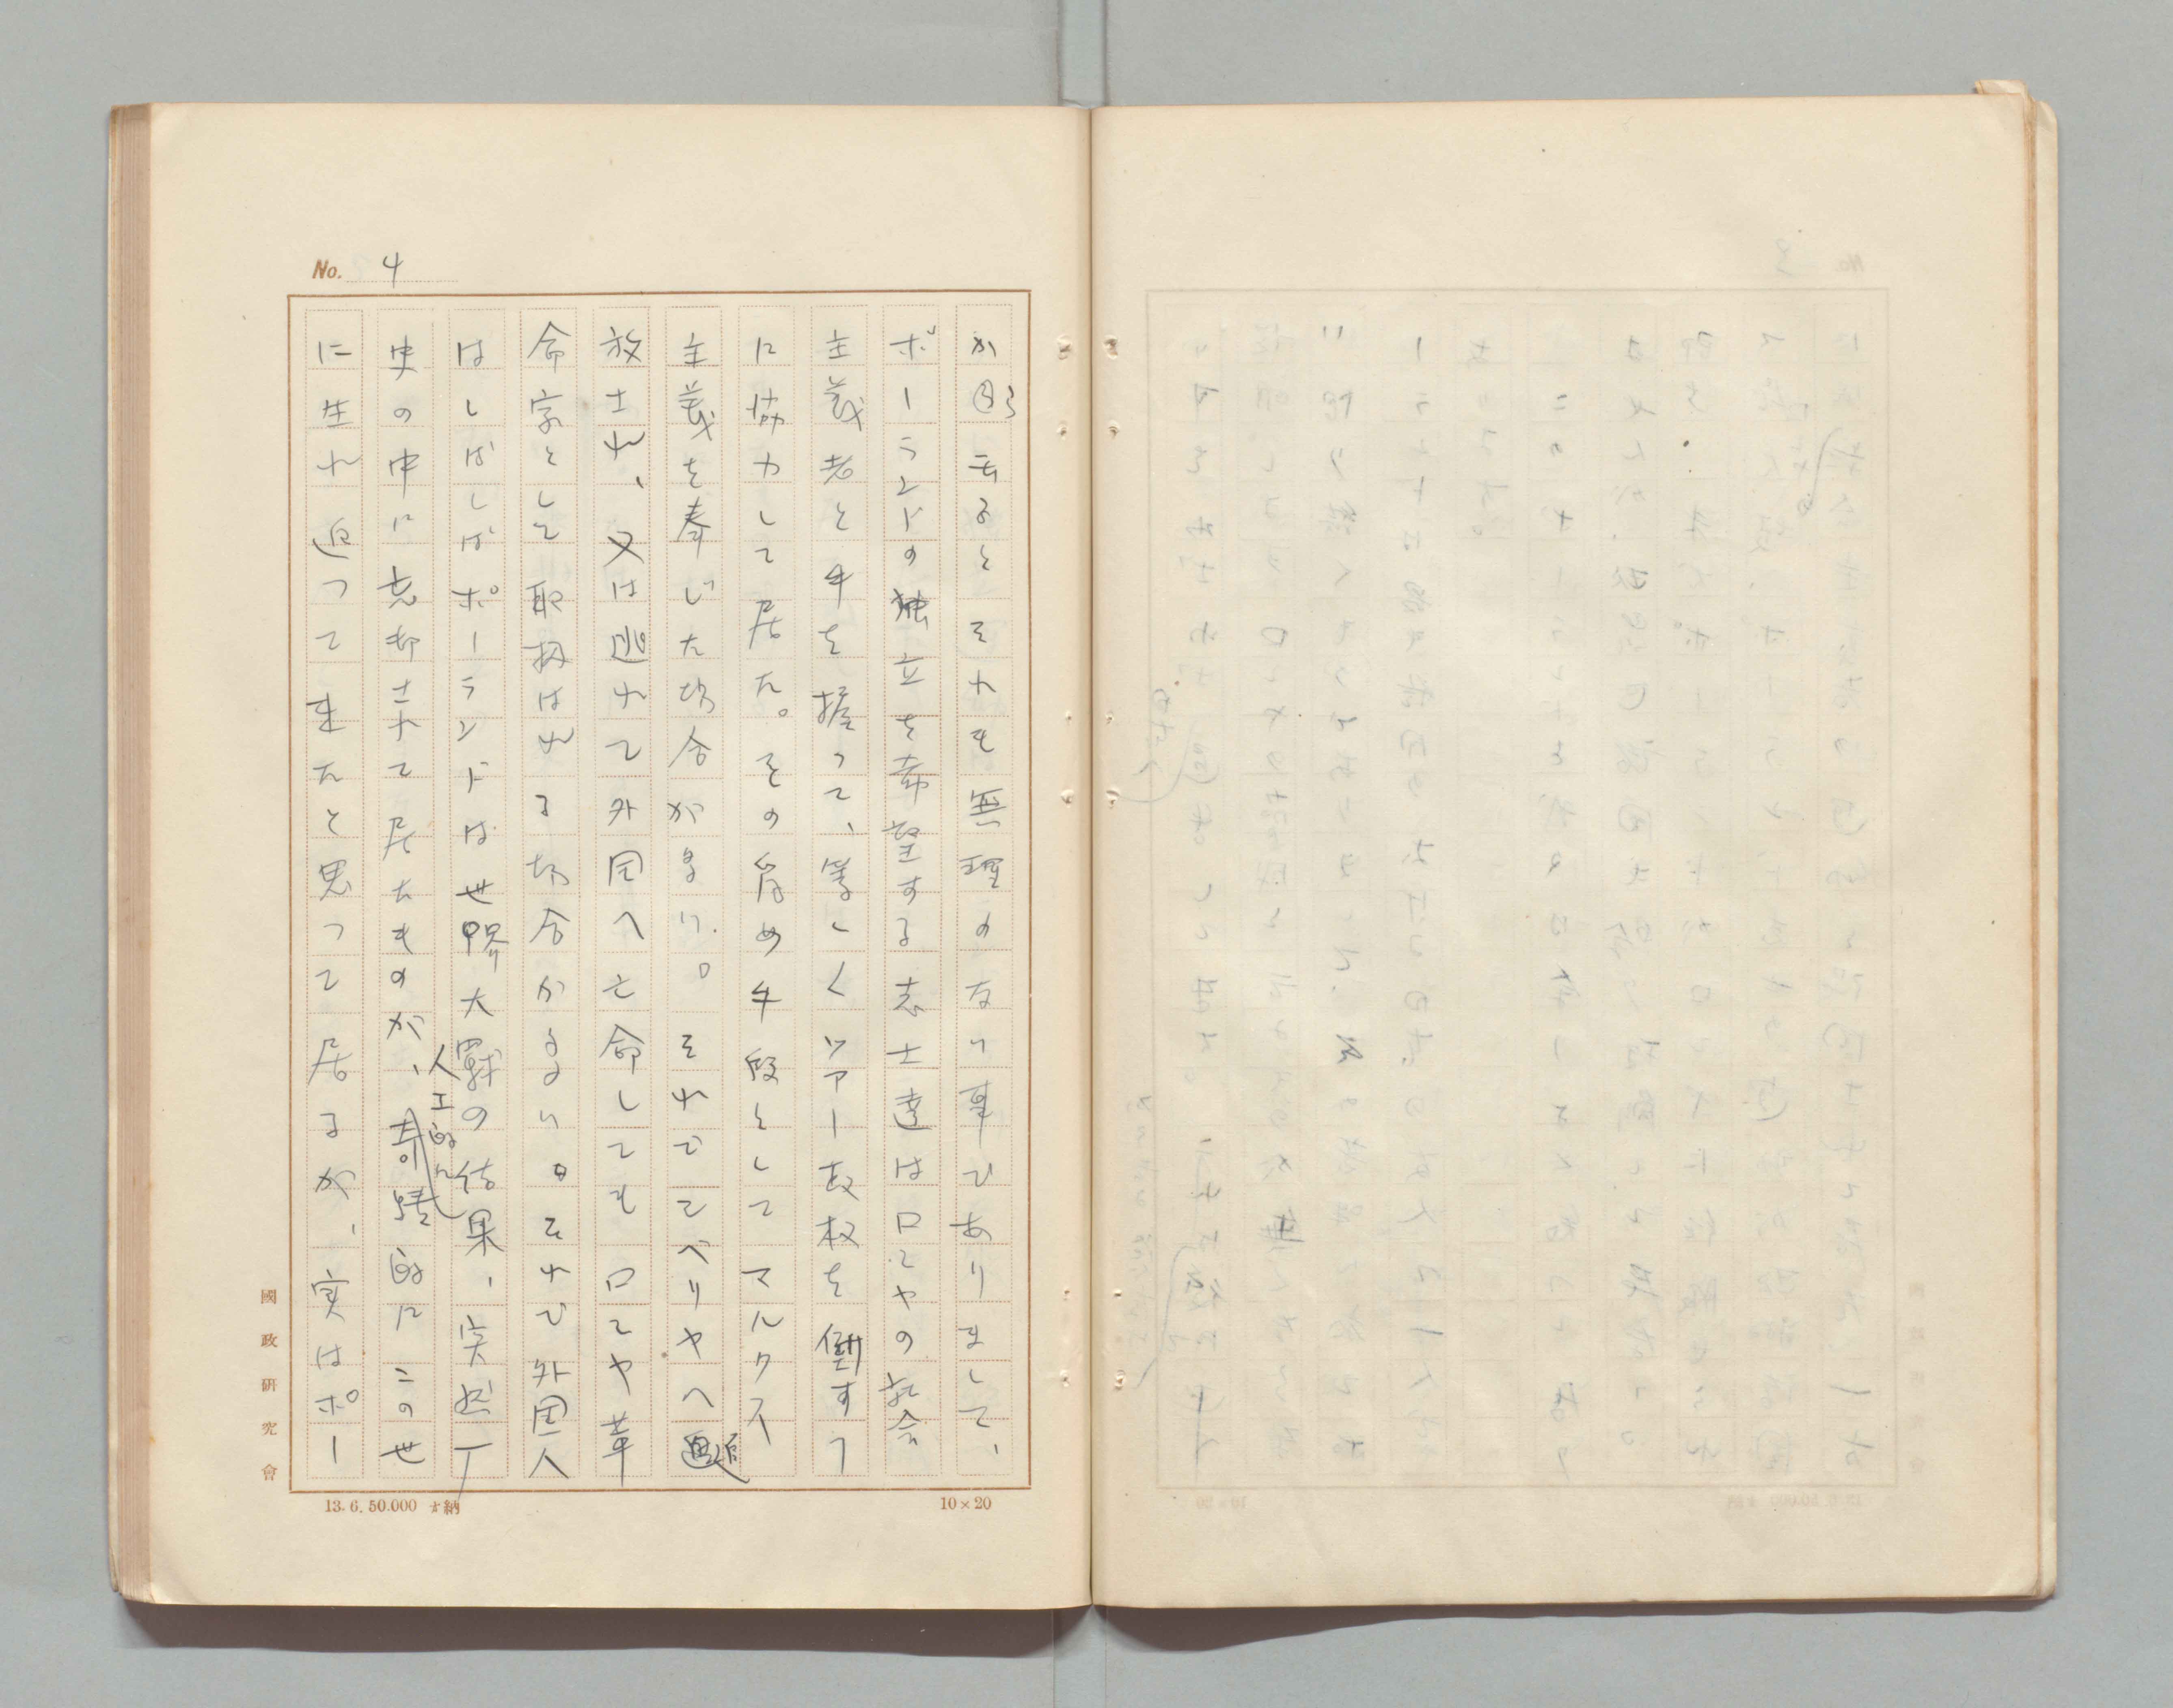 No. 4
か図云ると それも無理のない事でありまして、
ポーランドの独立を希望する志士達はロシヤの社会
主義者と手を握って、等しくツアー政权を倒す
に協力して居た。その為め手段としてマルクス
主義を奉じた場合があり。それでシベリヤへ追
放され、又は逃れて外国へ亡命してもロシヤ革
命家として取扱はれる場合がある。それで外国人
はしばしばポーランドは世界大戦の結果、突然
史の中に忘却されて居たものが、人工的に奇蹟的にこの世
に生れ返って来たと思って居るが、実はポー
國政研究會
13. 6. 50.000 納
10×20